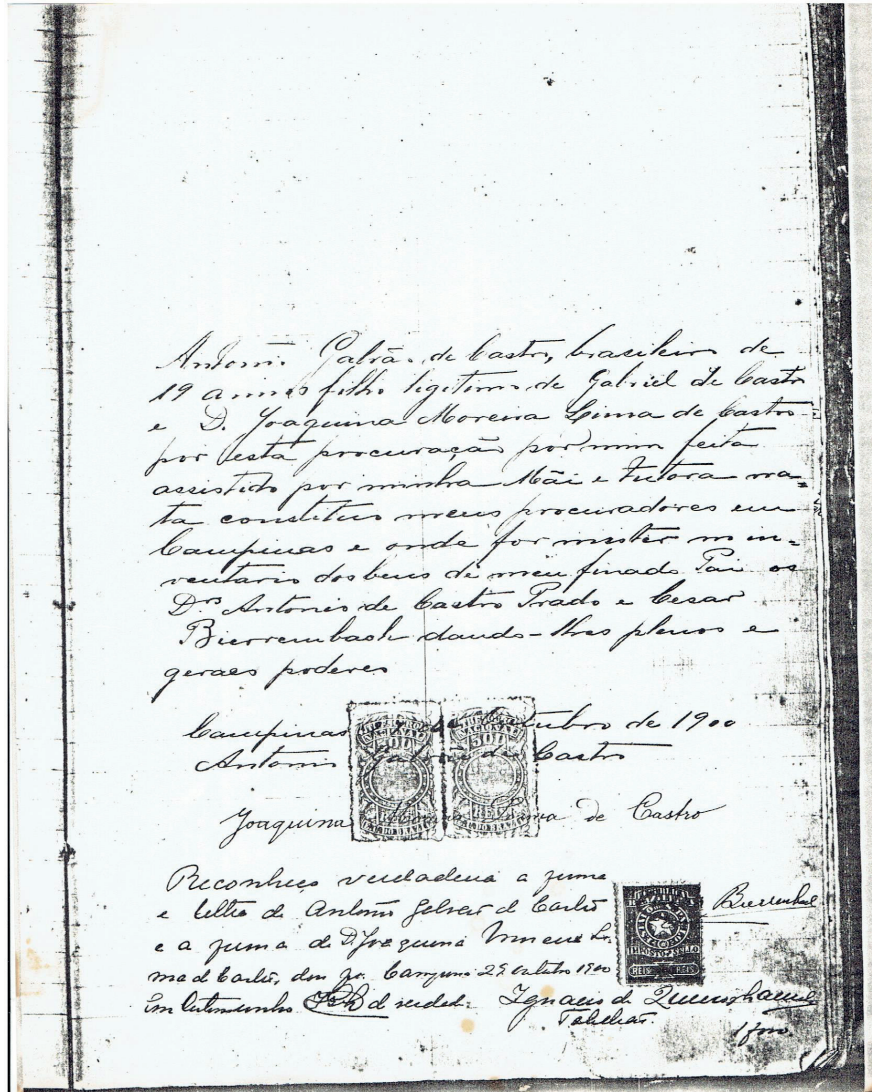 Antonio Galvão de Castro, brasileiro de
19 annos filho ligitimo de Gabriel de Castro
e D. Joaquina Moreira Lima de Castro
por esta procuração por mim feita
assistido por minha Mãi e Tutora na-
ta constituo meus procuradores em
Campinas e onde for mister no in-
ventario dos bens de meu finado Pai os
Drs Antonio de Castro Prado e Cesar
Bierrembach dando-lhes plenos e
geraes poderes
Campinas de 1900
Antonio Galvão de Castro
Joaquina Lima de Castro
Reconheço verdadeira a firma
e lettra de Antonio Galvão de Castro
e a firma de D. Joaquina Moreira Li-
ma de Castro, dou fé. Campinas 29 outubro 1900
Em testemunho da verdade
Tabellião
500 500
REIS REIS